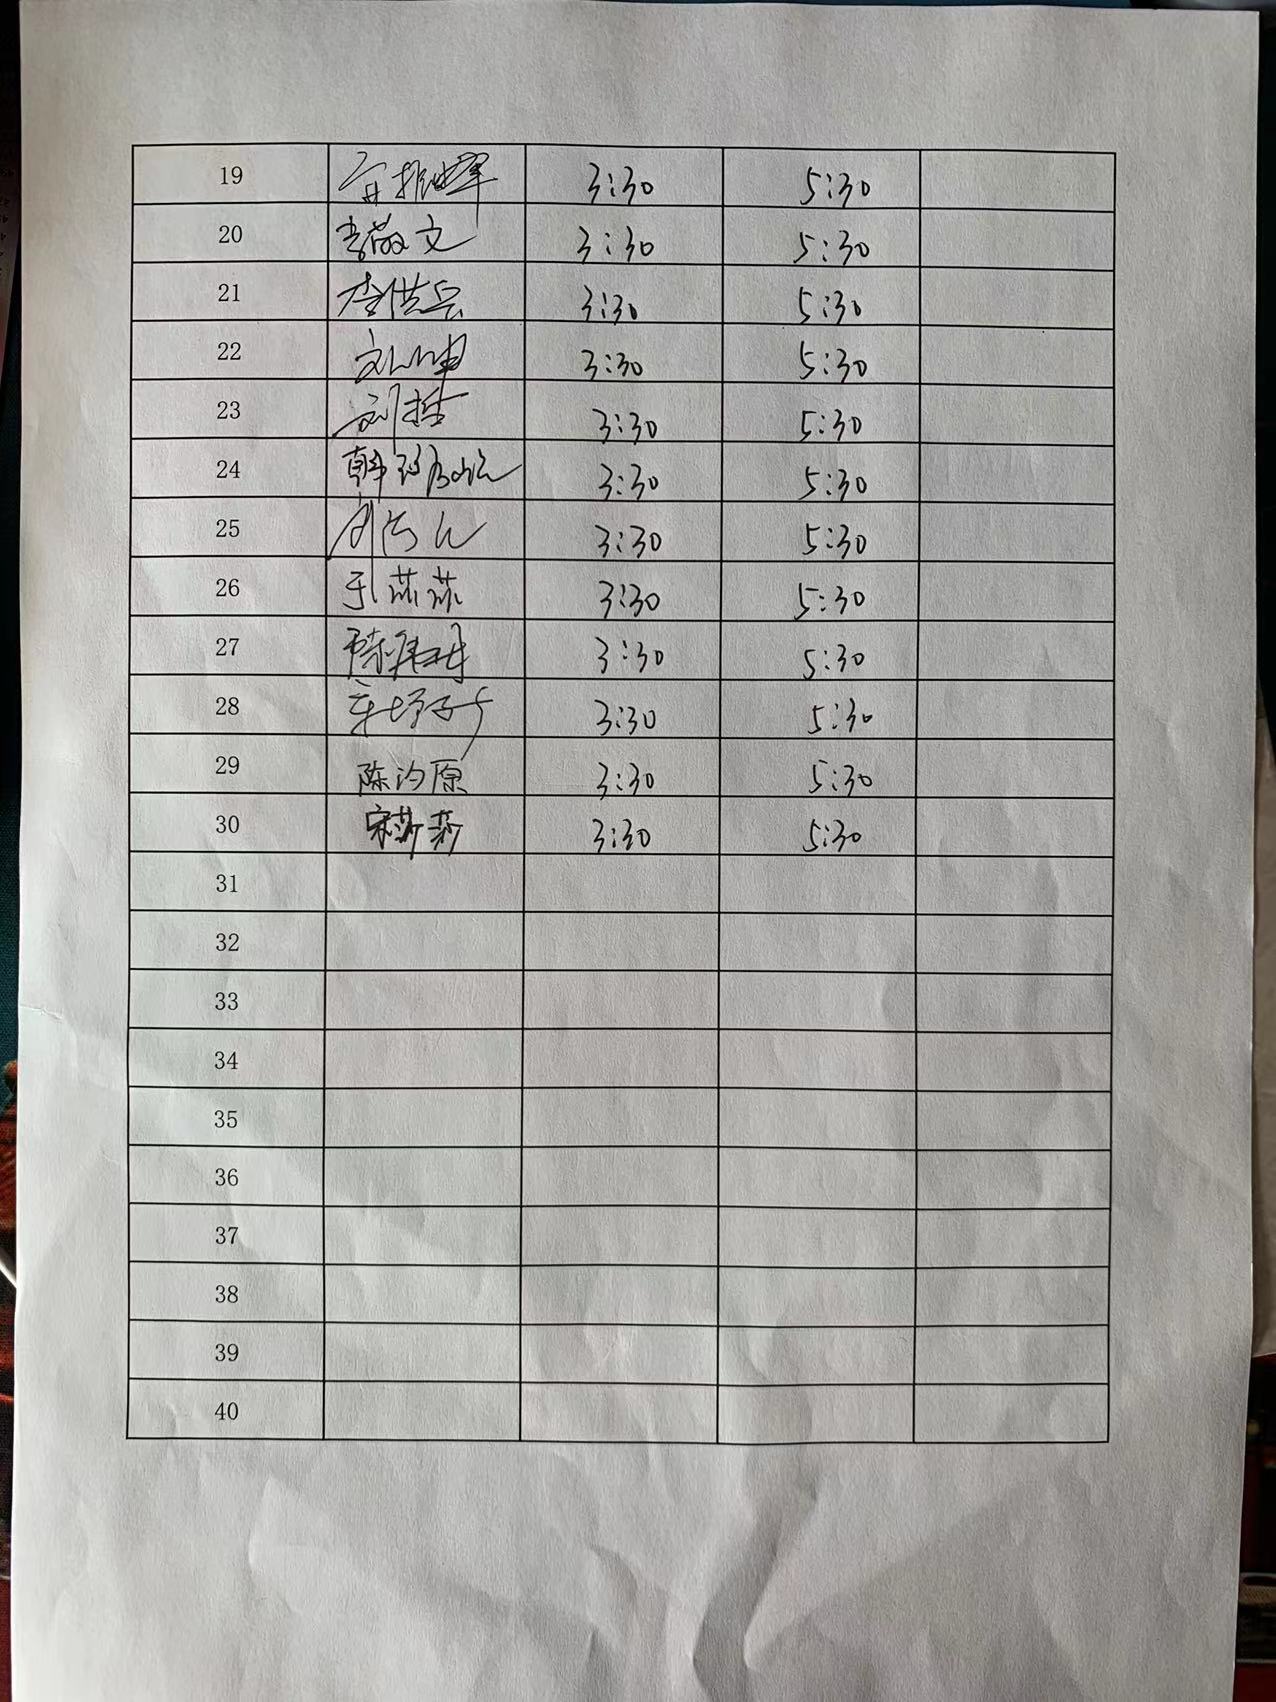 19 3:30 5:30
20 李敬文 3:30 5:30
21 李洪兵 3:30 5:30
22 刘坤 3:30 5:30
23 刘哲 3:30 5:30
24 韩 3:30 5:30
25 刘 3:30 5:30
26 于茹茹 3:30 5:30
27 陈 3:30 5:30
28 3:30 5:30
29 陈汐原 3:30 5:30
30 宋莎莎 3:30 5:30
31
32
33
34
35
36
37
38
39
40